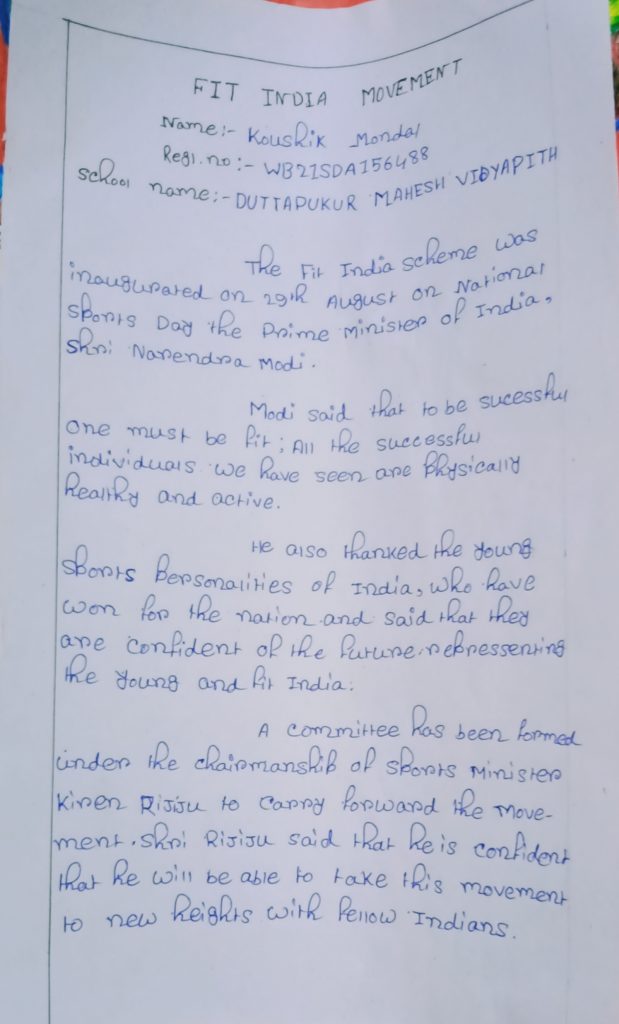 FIT INDIA MOVEMENT
Name:- Koushik Mondal
Regi.no:- WB21SDA156488
School name:- DUTTAPUKUR MAHESH VIDYAPITH
The Fit India scheme was
inaugurated on 29th August on National
sports Day the Prime Minister of India,
Shri Narendra Modi.
Modi said that to be sucessful
one must be fit; All the successful
individuals we have seen are physically
healthy and active.
He also thanked the young
sports personalities of India, who have
won for the nation and said that they
are confident of the future.repressenting
the young and fit India.
A committee has been formed
under the chairmanship of sports Minister
Kiren Rijiju to carry forward the move-
ment. Shri Rijiju said that he is confident
that he will be able to take this movement
to new heights with fellow Indians.